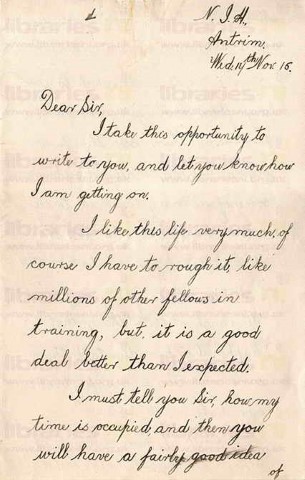 1
N. I. H.
Antrim.
Wed 17th Nov 15.
Dear Sir,
I take this opportunity to
write to you, and let you know how
I am getting on.
I like this life very much, of
course I have to rough it, like
millions of other fellows in
training, but it is a good
deal better than I expected.
I must tell you Sir, how my
time is occupied, and then you
will have a fairly good idea
of